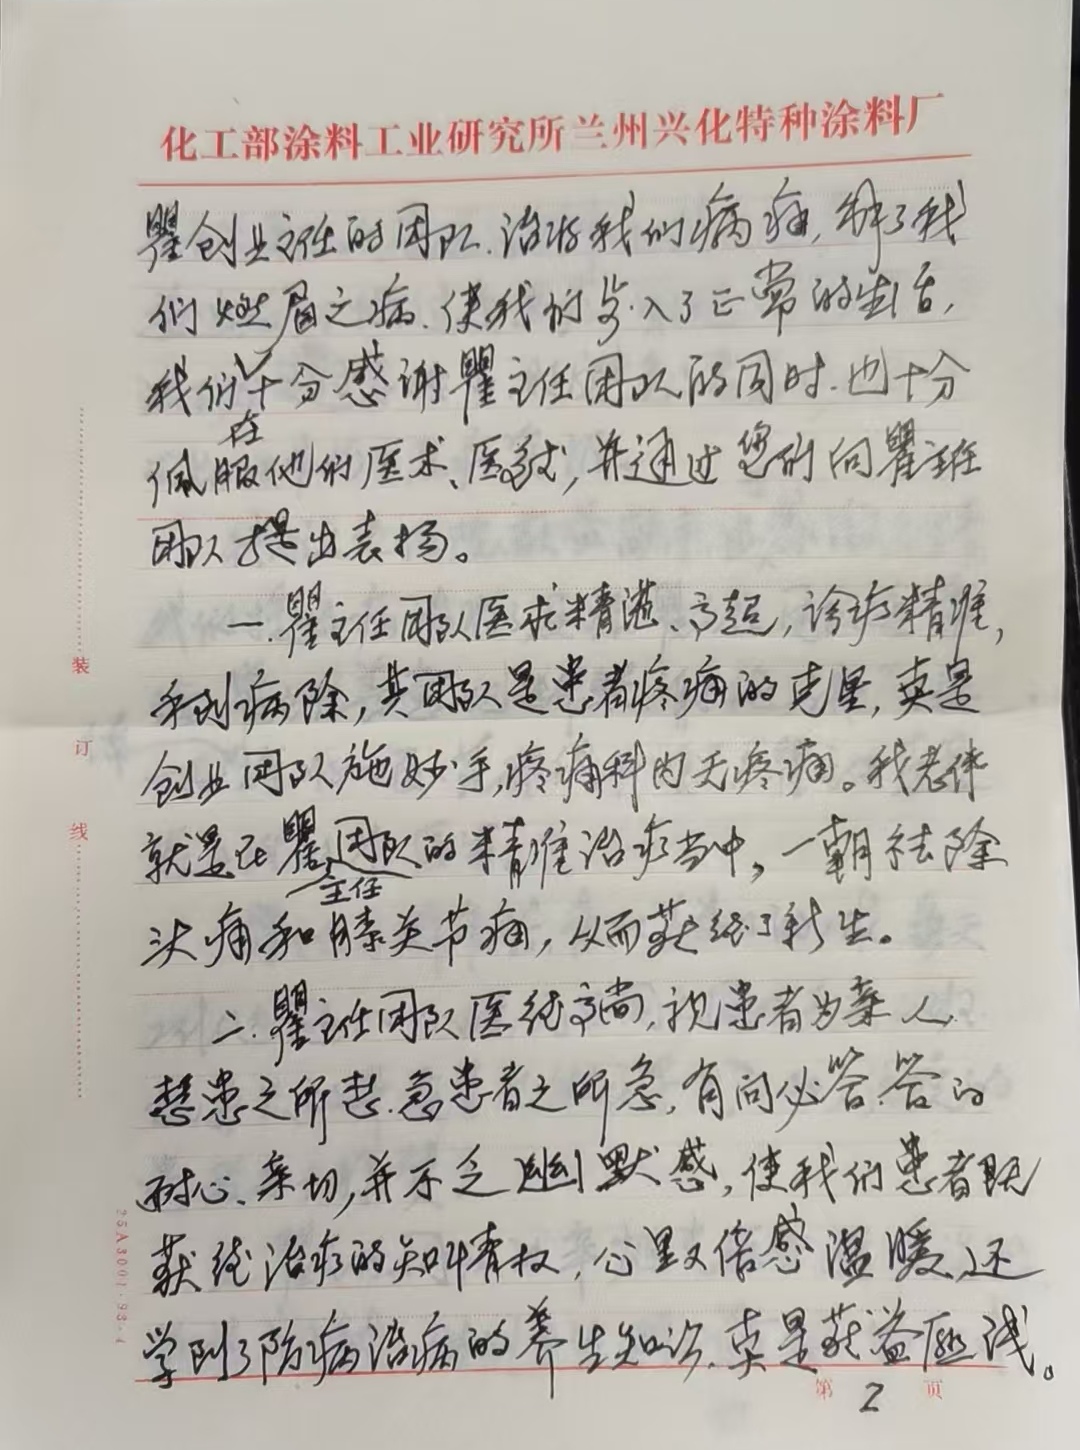 化工部涂料工业研究所兰州兴化特种涂料厂
瞿创业主任的团队.治好我们病痛,解了我
们燃眉之病.使我们步入了正常的生活,
我们十分感谢瞿主任团队的同时.也十分
在
佩服他们医术、医德,并通过您们向瞿主任
团队提出表扬。
一.瞿主任团队医术精湛、高超,诊疗精准,
手到病除,其团队是患者疼痛的克星,真是
创业团队施妙手,疼痛科内无疼痛。我老伴
就是在瞿团队的精准治疗当中,一朝祛除
主任
头痛和膝关节痛,从而获得了新生。
二.瞿主任团队医德高尚,视患者为亲人.
想患之所想.急患者之所急,有问必答.答的
耐心、亲切,并不乏幽默感,使我们患者既
获得治疗的知情权,心里又倍感温暖,还
学到了防病治病的养生知识.真是获益匪浅。
装
订
线
25A3001·93·4
第 2 页